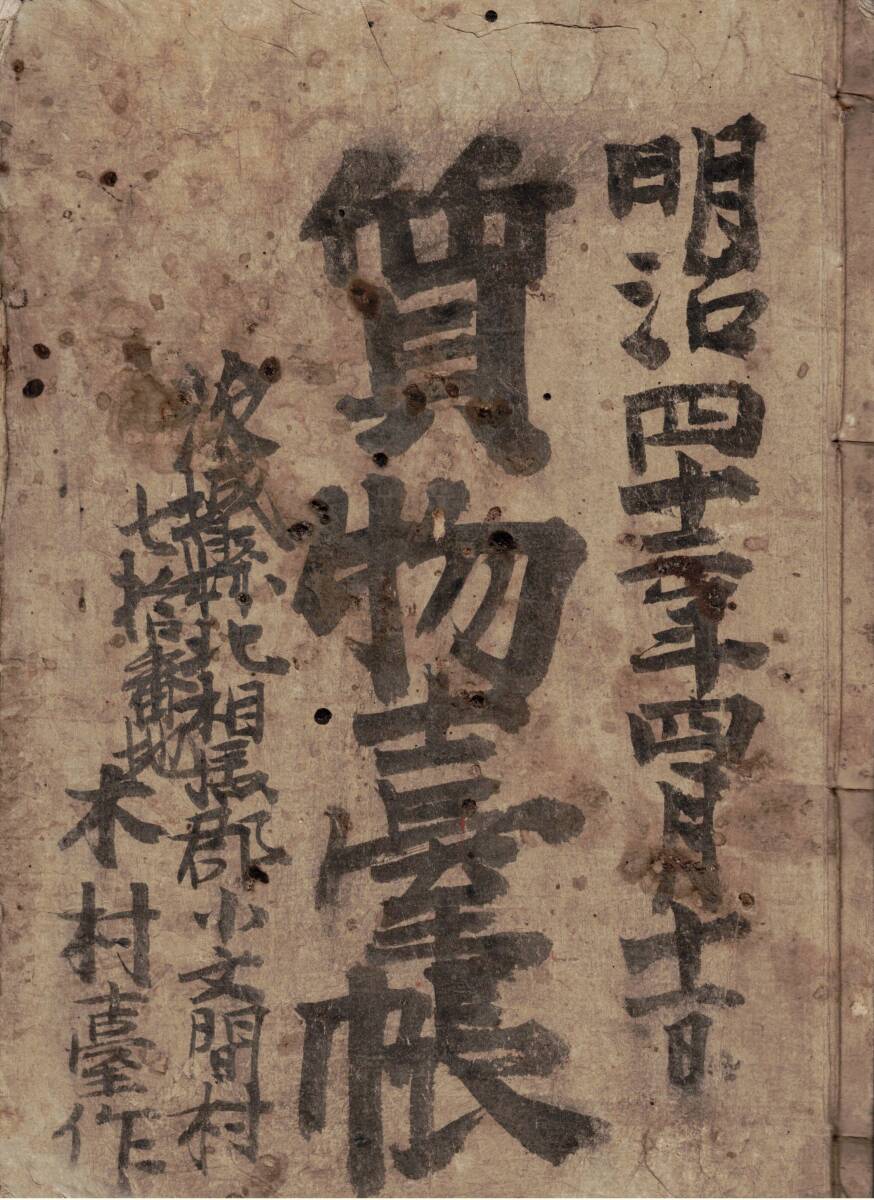 明治四十二年四月十一日
質物臺帳
茨城縣下北相馬郡小文間村
七拾番地
木村臺作